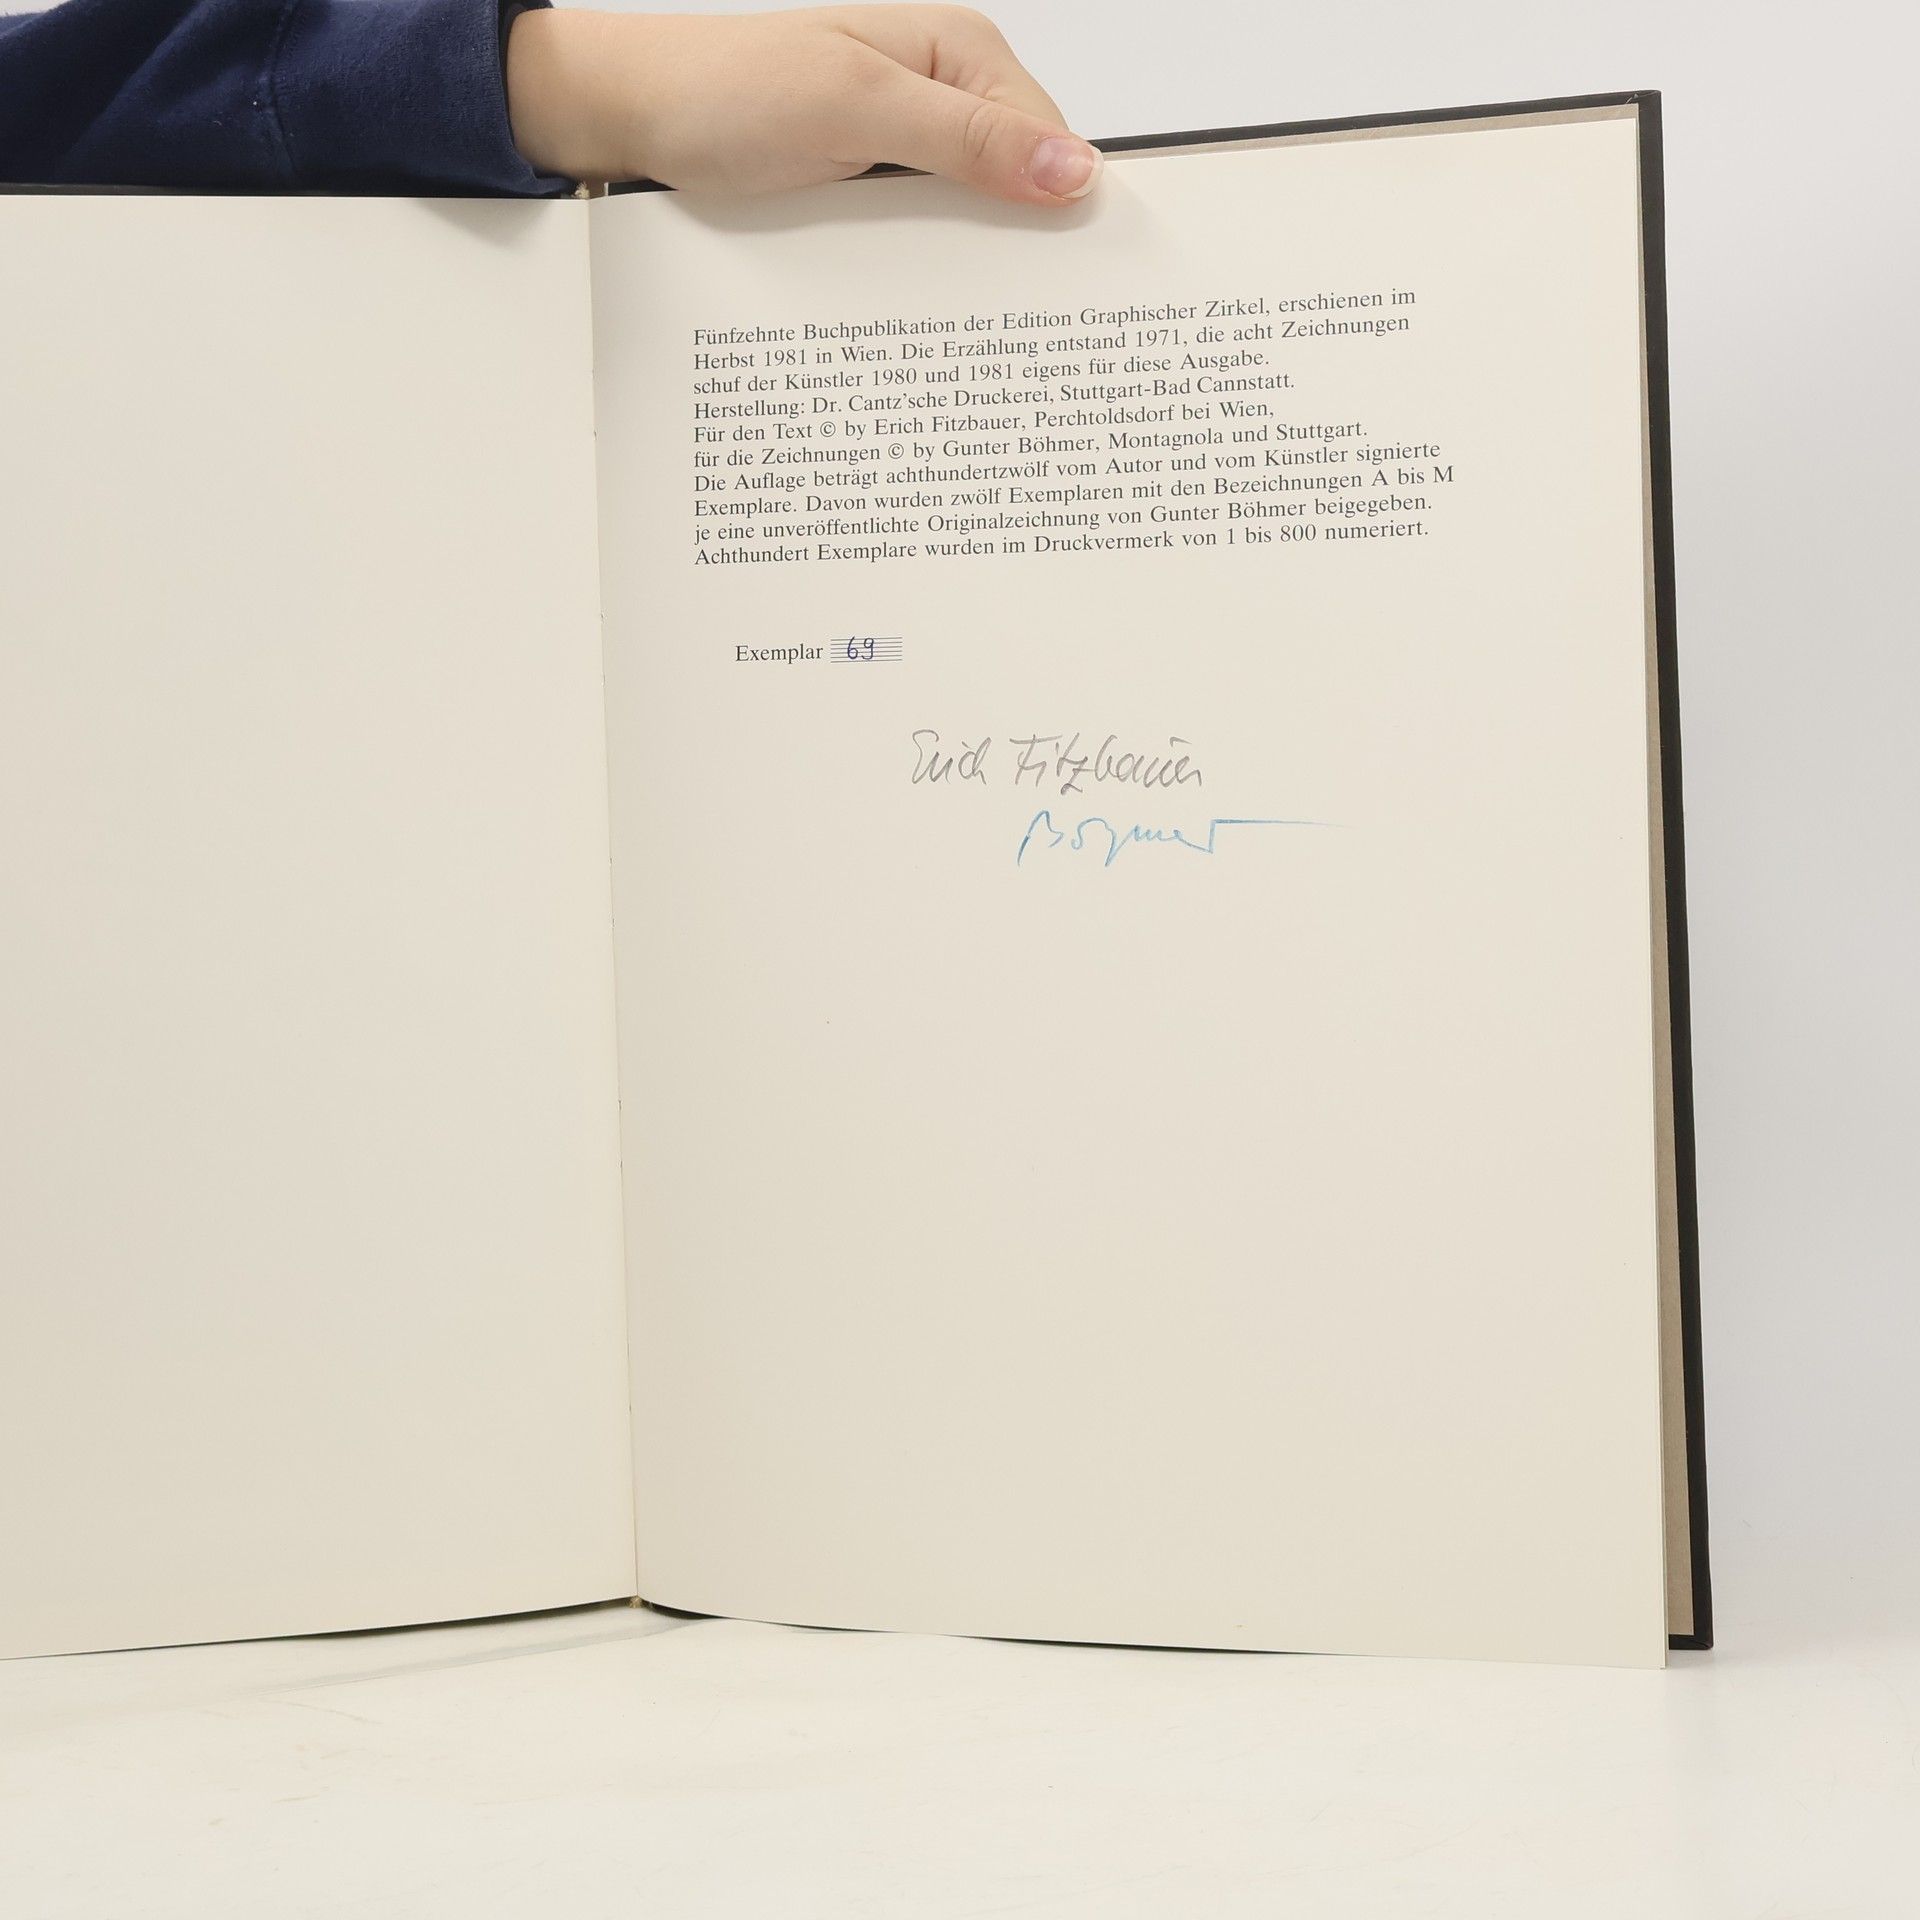 Fünfzehnte Buchpublikation der Edition Graphischer Zirkel, erschienen im
Herbst 1981 in Wien. Die Erzählung entstand 1971, die acht Zeichnungen
schuf der Künstler 1980 und 1981 eigens für diese Ausgabe.
Herstellung: Dr. Cantz'sche Druckerei, Stuttgart-Bad Cannstatt.
Für den Text © by Erich Fitzbauer, Perchtoldsdorf bei Wien,
für die Zeichnungen © by Gunter Böhmer, Montagnola und Stuttgart.
Die Auflage beträgt achthundertzwölf vom Autor und vom Künstler signierte
Exemplare. Davon wurden zwölf Exemplaren mit den Bezeichnungen A bis M
je eine unveröffentlichte Originalzeichnung von Gunter Böhmer beigegeben.
Achthundert Exemplare wurden im Druckvermerk von 1 bis 800 numeriert.
Exemplar 69
Erich Fitzbauer
Böhmer